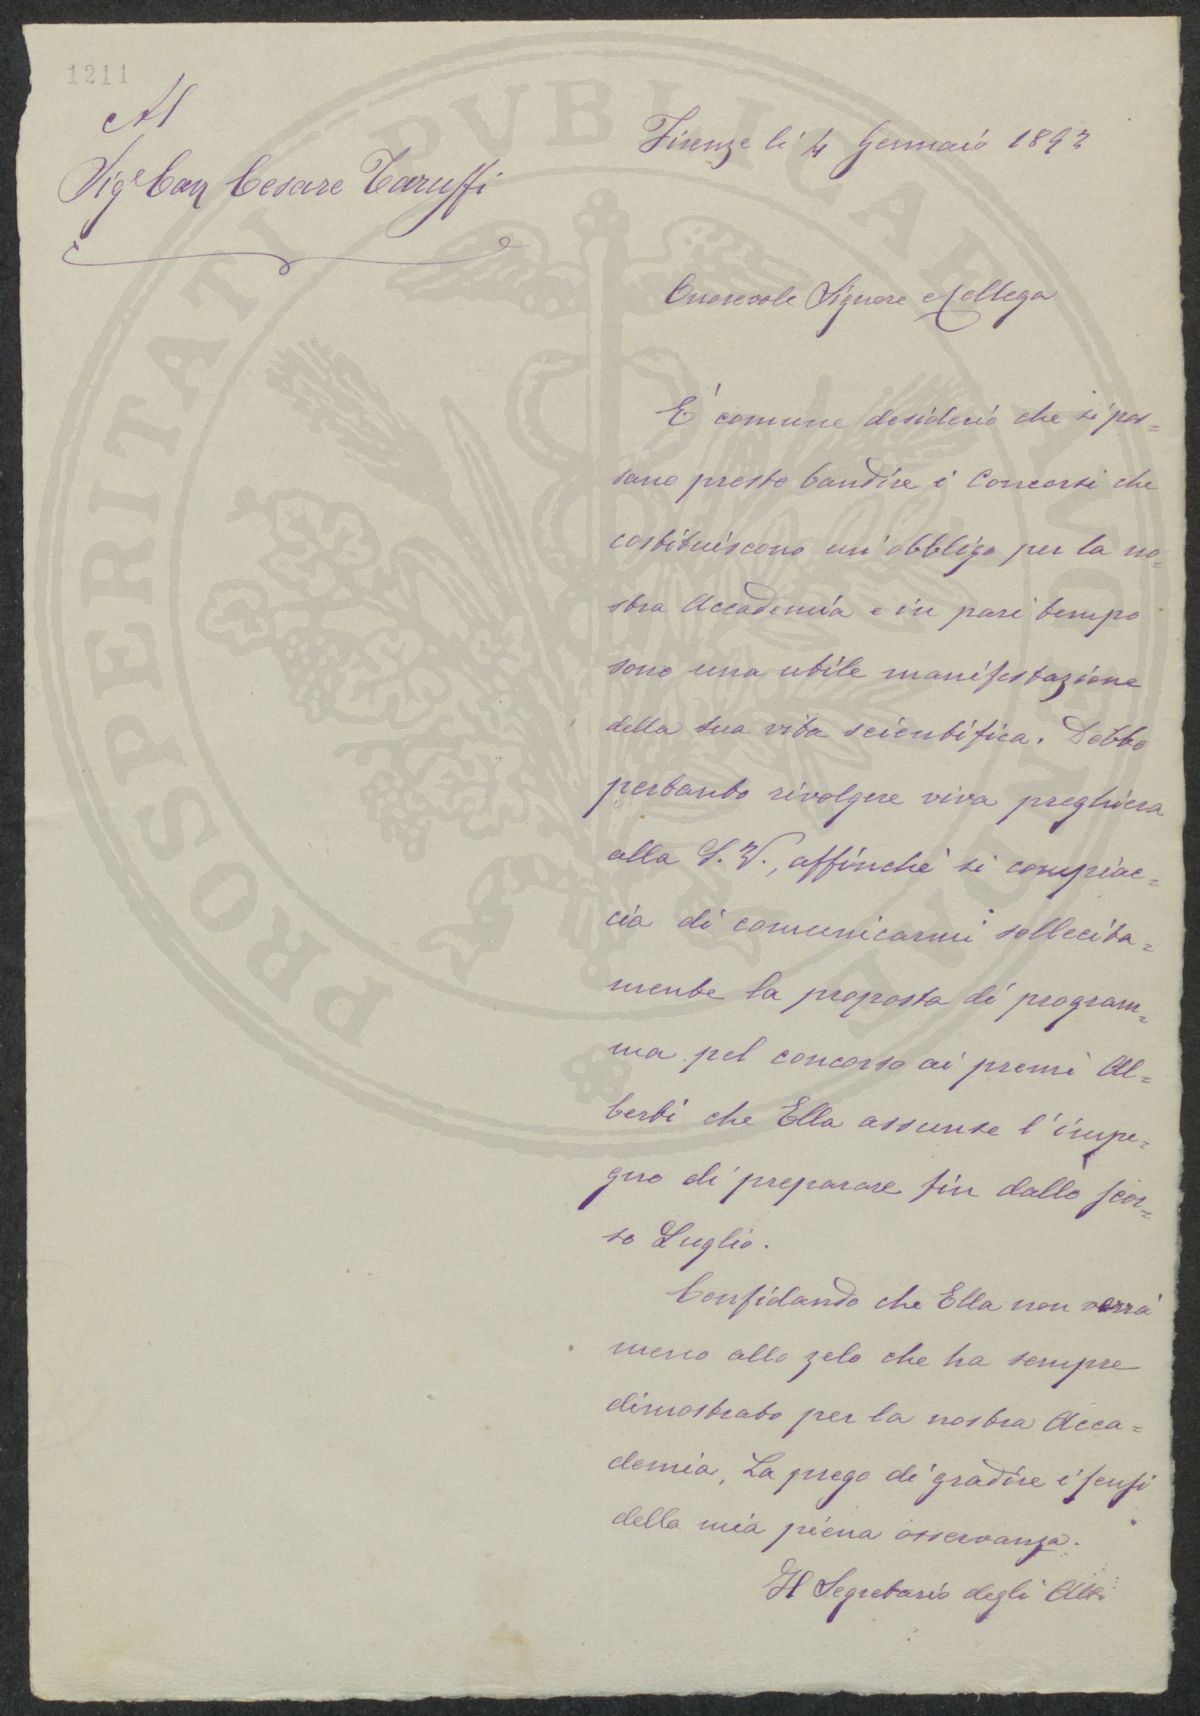 1211
Al
Sig.e Cav Cesare Taruffi
Firenze li 4 Gennaio 1893
Onorevole Signore e Collega
E' comune desiderio che si pos=
sano presto bandire i Concorsi che
costituiscono un'obbligo per la no=
stra Accademia e in pari tempo
sono una utile manifestazione
della sua vita scientifica. Debbo
pertanto rivolgere viva preghiera
alla S. V., affinchè si compiac=
cia di comunicarmi sollecita=
mente la proposta di program=
ma pel concorso ai premi Al=
berti che Ella assunse l'impe=
gno di preparare fin dallo scor=
so Luglio.
Confidando che Ella non verrà
meno allo zelo che ha sempre
dimostrato per la nostra Acca=
demia, La prego di gradire i sensi
della mia piena osservanza.
Il Segretario degli Atti
PROSPERITATI PVBLICAE